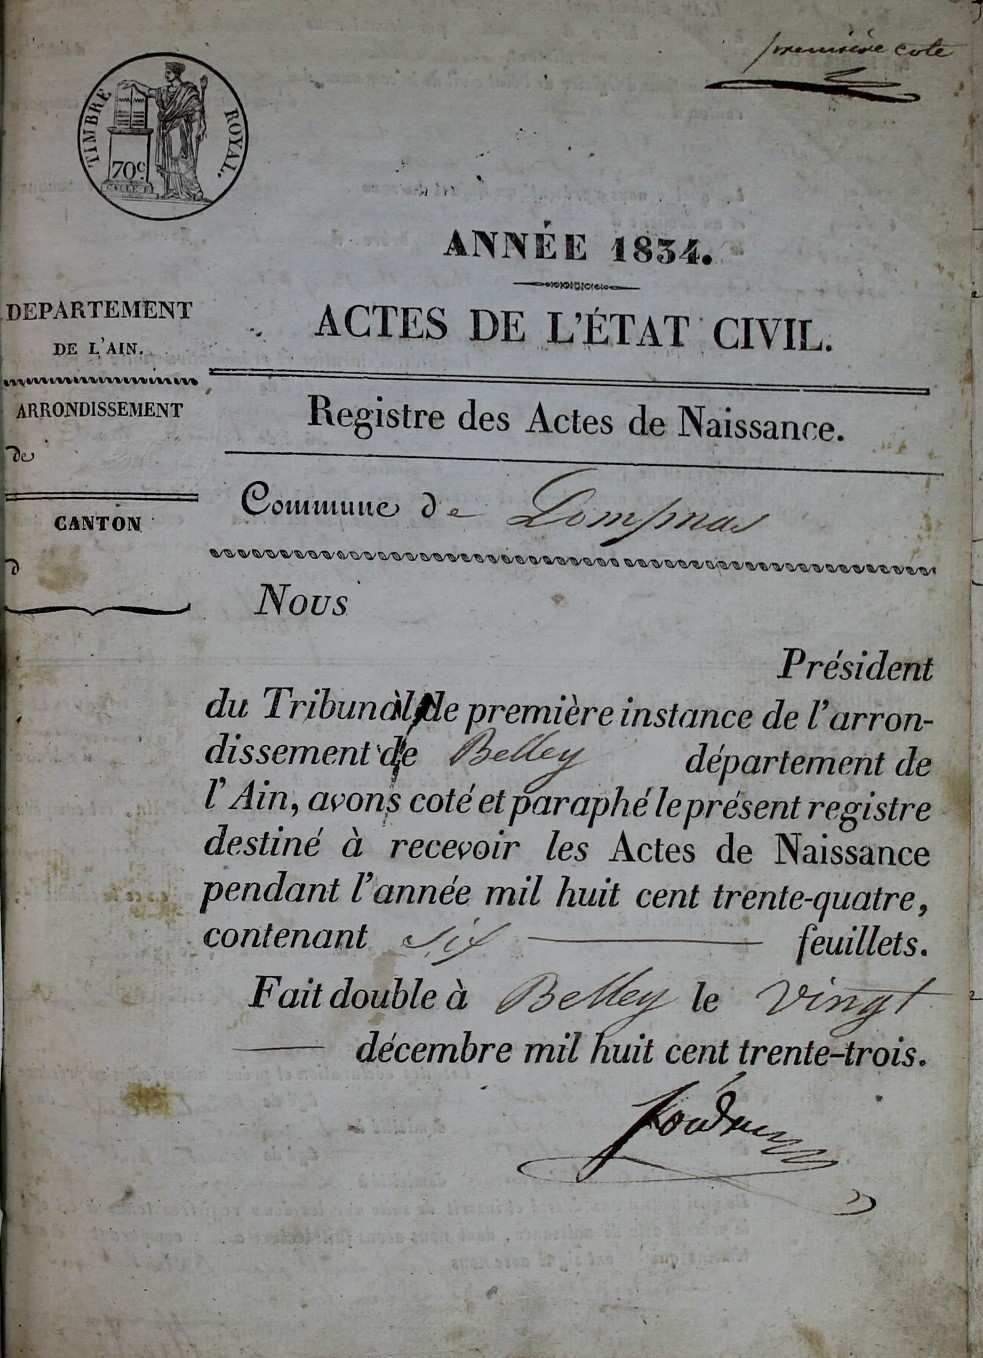 première cote
TIMBRE ROYAL.
70c.
ANNÉE 1834.
ACTES DE L'ÉTAT CIVIL.
DEPARTEMENT
DE L'AIN.
ARRONDISSEMENT
de
CANTON
d
Registre des Actes de Naissance.
Commune de Lompnas
Nous
Président
du Tribunal de première instance de l'arron-
dissement de Belley département de
l'Ain, avons coté et paraphé le présent registre
destiné à recevoir les Actes de Naissance
pendant l'année mil huit cent trente-quatre,
contenant six feuillets.
Fait double à Belley le vingt
décembre mil huit cent trente-trois.